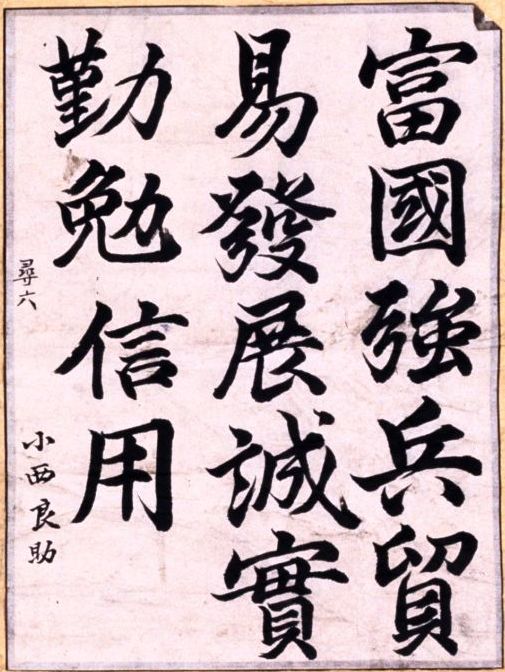 富國強兵貿
易發展誠實
勤勉信用
尋六
小西良助